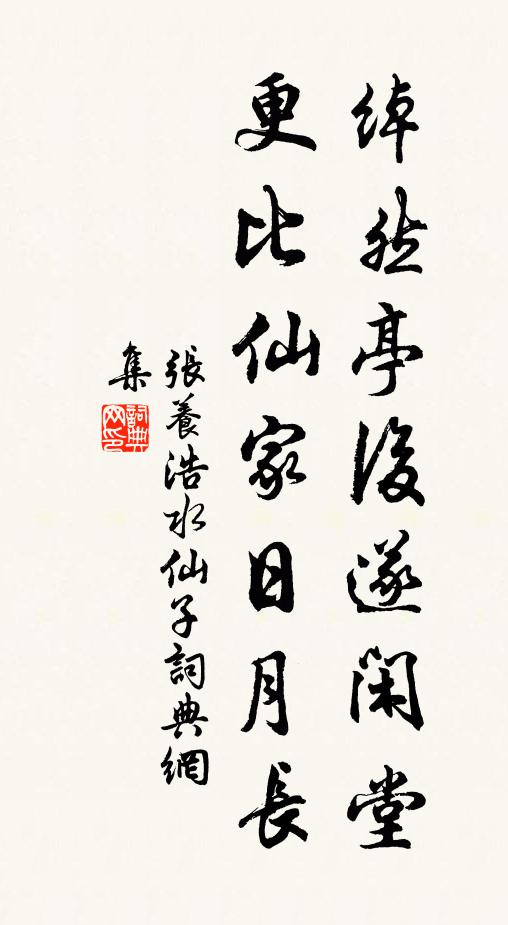 綽然亭後遂閑堂
更比仙家日月長
張養浩水仙子詞典網
集
詞典網印